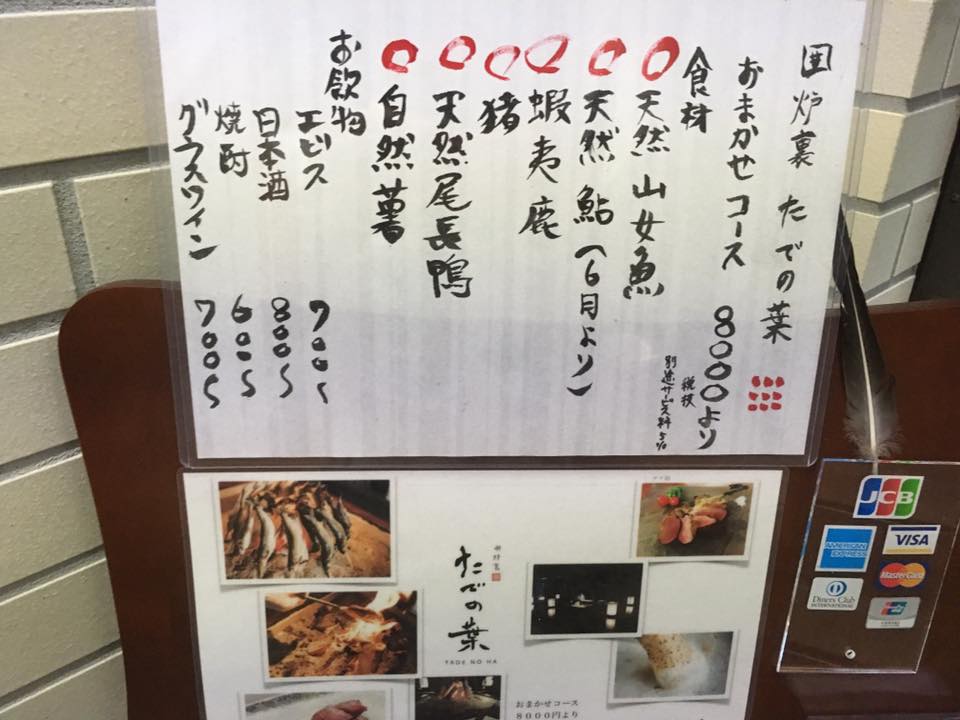 囲炉裏 たでの葉
おまかせコース 8000より
税抜
別途サービス料5%
食材
天然山女魚
天然鮎(6月より)
蝦夷鹿
猪
天然尾長鴨
自然薯
お飲物
エビス 700〜
日本酒 800〜
焼酎 600〜
グラスワイン 700〜
たでの葉
TADE NO HA
おまかせコース
8000円より
JCB
AMERICAN EXPRESS
VISA
MasterCard
Diners Club
INTERNATIONAL